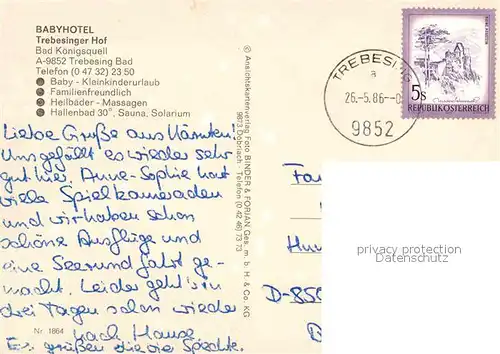 BABYHOTEL
Trebesinger Hof
Bad Königsquell
A-9852 Trebesing Bad
Telefon (0 47 32) 23 50
Baby - Kleinkinderurlaub
Familienfreundlich
Heilbäder - Massagen
Hallenbad 30°, Sauna, Solarium
Liebe Grüße aus Kärnten!
Uns gefällt es wieder sehr
gut hier. Anne-Sophie hat
viele Spielkameraden
und wir haben schon
schöne Ausflüge und
eine Seerundfahrt ge-
macht. Leider geht's in
drei Tagen schon wieder
nach Hause
Es grüßen die
Nr. 1864
© Ansichtskartenverlag Foto BINDER & FORIAN Ges. m. b. H. & Co. KG
9873 Döbriach - Telefon (0 42 46) 73 73
TREBESING
a
26.-5.86--
9852
5s
REPUBLIK ÖSTERREICH
Fa
Hu
D-850
privacy protection
Datenschutz